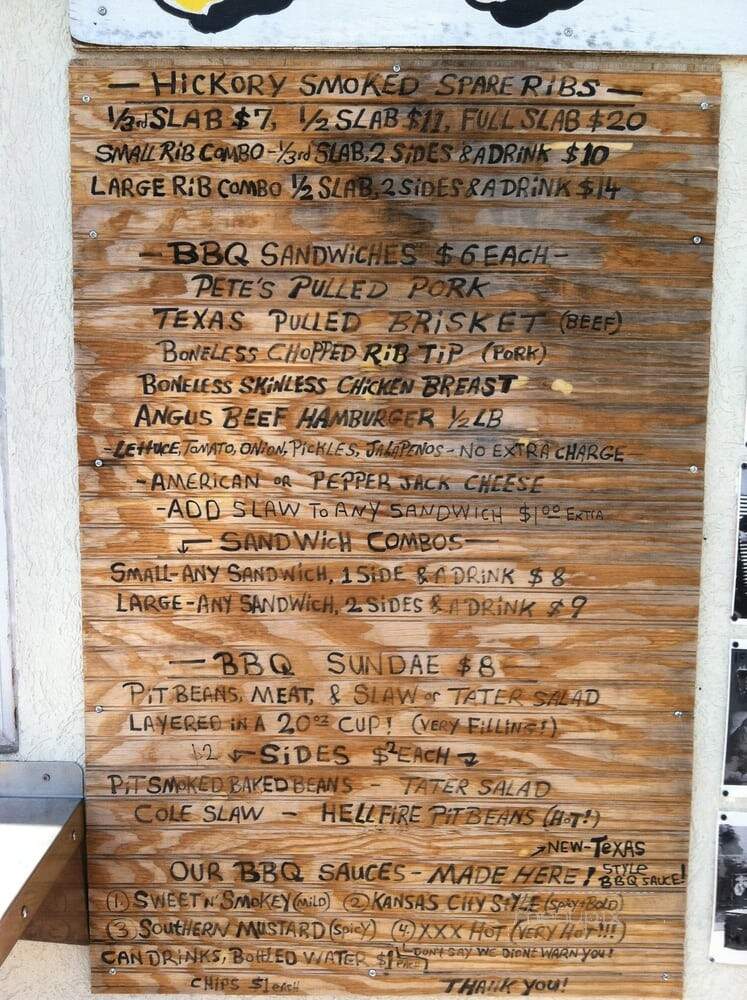 — HICKORY SMOKED SPARE RIBS —
1/3rd SLAB $7, 1/2 SLAB $11, FULL SLAB $20
SMALL RIB COMBO - 1/3rd SLAB, 2 SIDES & A DRINK $10
LARGE RIB COMBO 1/2 SLAB, 2 SIDES & A DRINK $14
— BBQ SANDWICHES $6 EACH —
PETE'S PULLED PORK
TEXAS PULLED BRISKET (BEEF)
BONELESS CHOPPED RIB TIP (PORK)
BONELESS SKINLESS CHICKEN BREAST
ANGUS BEEF HAMBURGER 1/2 LB
- LETTUCE, TOMATO, ONION, PICKLES, JALAPENOS - NO EXTRA CHARGE
- AMERICAN OR PEPPER JACK CHEESE
- ADD SLAW TO ANY SANDWICH $1.00 EXTRA
— SANDWICH COMBOS —
SMALL - ANY SANDWICH, 1 SIDE & A DRINK $8
LARGE - ANY SANDWICH, 2 SIDES & A DRINK $9
— BBQ SUNDAE $8 —
PIT BEANS, MEAT, & SLAW or TATER SALAD
LAYERED IN A 20oz CUP! (VERY FILLING!)
$2 SIDES $2 EACH
PIT SMOKED BAKED BEANS - TATER SALAD
COLE SLAW - HELLFIRE PIT BEANS (HOT!)
NEW-TEXAS
OUR BBQ SAUCES - MADE HERE! STYLE
BBQ SAUCE!
1 SWEET N' SMOKEY (MILD) 2 KANSAS CITY STYLE (SPICY + BOLD)
3 SOUTHERN MUSTARD (SPICY) 4. XXX HOT (VERY HOT!!!)
CAN DRINKS, BOTTLED WATER $1 EACH DON'T SAY WE DIDNT WARN YOU!
CHIPS $1 EACH THANK YOU!